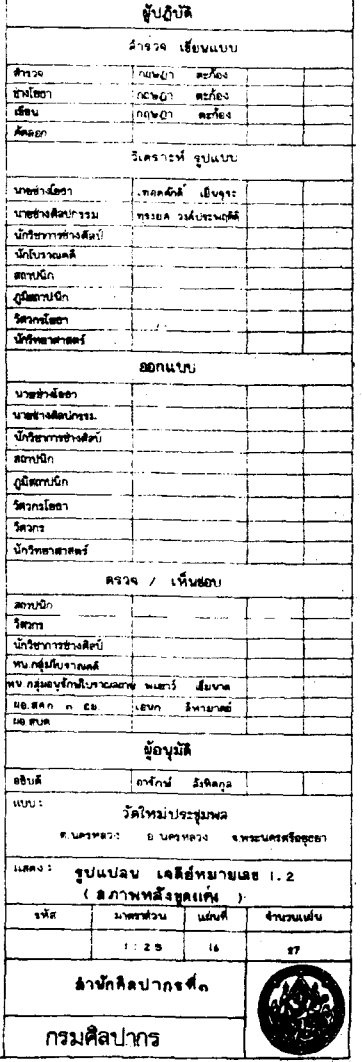 ผู้ปฏิบัติ
สำรวจ เขียนแบบ
สำรวจ กฤษฎา ตะก้อง
ช่างโยธา กฤษฎา ตะก้อง
เขียน กฤษฎา ตะก้อง
คัดลอก
วิเคราะห์ รูปแบบ
นายช่างโยธา เทอดศักดิ์ เย็นจุระ
นายช่างศิลปกรรม ทรงยศ วงศ์ประพฤติดี
นักวิชาการช่างศิลป์
นักโบราณคดี
สถาปนิก
ภูมิสถาปนิก
วิศวกรโยธา
นักวิทยาศาสตร์
ออกแบบ
นายช่างโยธา
นายช่างศิลปกรรม
นักวิชาการช่างศิลป์
สถาปนิก
ภูมิสถาปนิก
วิศวกรโยธา
วิศวกร
นักวิทยาศาสตร์
ตรวจ / เห็นชอบ
สถาปนิก
วิศวกร
นักวิชาการช่างศิลป์
หน.กลุ่มโบราณคดี
หน.กลุ่มอนุรักษ์โบราณสถาน พเยาว์ เข็มนาค
ผอ.สศก ๓ อย. เอนก สีหามาตย์
ผอ.สบค
ผู้อนุมัติ
อธิบดี อารักษ์ สังหิตกุล
แบบ :
วัดใหม่ประชุมพล
ต.นครหลวง อ นครหลวง จ.พระนครศรีอยุธยา
แสดง : รูปแปลน เจดีย์หมายเลข 1.2
( สภาพหลังขุดแต่ง )
รหัส มาตราส่วน แผ่นที่ จำนวนแผ่น
1 : 25 16 27
สำนักศิลปากรที่๓
กรมศิลปากร